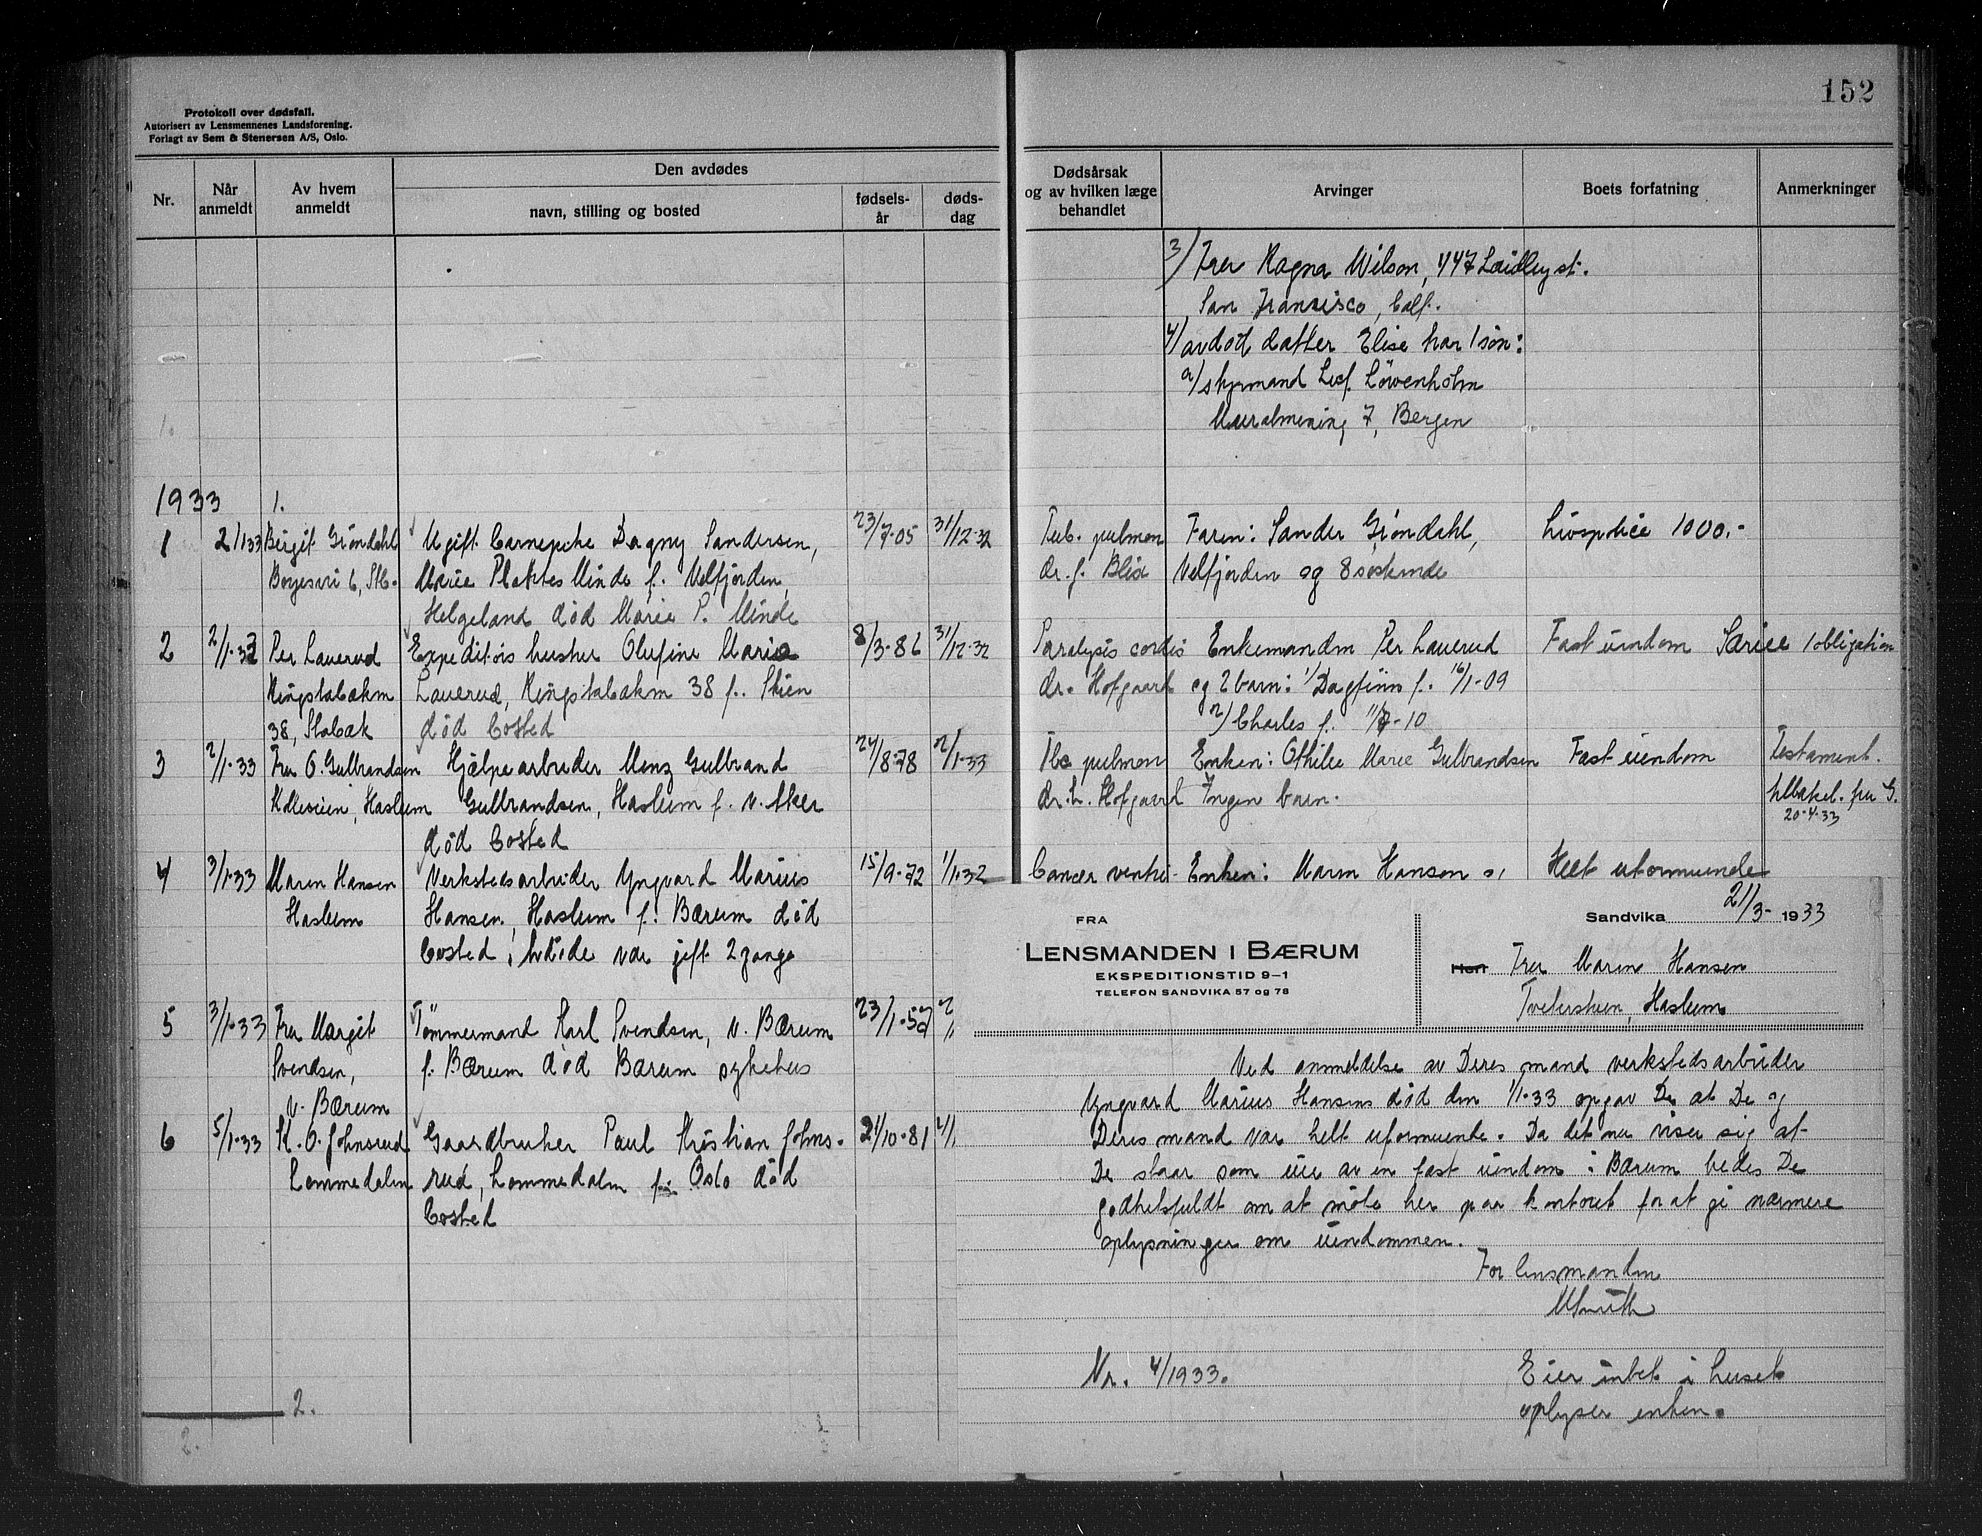 152
Protokoll over dødsfall.
Autorisert av Lensmennenes Landsforening.
Forlagt av Sem & Stenersen A/S, Oslo.
Nr.
Når anmeldt
Av hvem anmeldt
Den avdødes
navn, stilling og bosted
fødsels-år
døds-dag
Dødsårsak og av hvilken læge behandlet
Arvinger
Boets forfatning
Anmerkninger
3/ Frer Ragna Wilson, 447 Laidley st.
San Fransisco, Calf.
4/ avdød datter Elise har 1 søn:
a/ styrmand Leif Löwenholm
Muralmening 7, Bergen
1933
1.
1 2/1 33 Birgit Gröndahl Ugift barnepike Dagny Sandersen, 23/7-05 31/12-32 Tub. pulmon Faren: Sander Gröndahl, Livspolice 1000.-
6, Stb. Marie Plaktes Minde f. Velfjorden, dr. J. Blix Velfjorden og 8 søskende
Helgeland död Marie P. Minde
2 2/1-33 Per Lauerud Expeditørs hustru Olufine Marie 8/3-86 31/12-32 Paralysis cordis Enkemanden Per Lauerud Fast eiendom Særeie 1 obligation
Ringstabækm Lauerud, Ringstabækm 38 f. Skien dr. Hofgaard og 2 barn: 1/ Dagfinn f. 16/1-09
38, Stabæk död bosted 2/ Charles f. 11/7-10
3 2/1-33 Frer O. Gulbrandsen Hjælpearbeider Menz Gulbrand 24/8-78 2/1-33 Tbc pulmon Enken: Othilie Marie Gulbrandsen Fast eiendom Testament.
Kolleveien, Haslum Gulbrandsen, Haslum f. V. Aker dr. L. Hofgaard Ingen barn. tilbakel. fru G.
död bosted 20-4-33
4 3/1-33 Maren Hansen Verkstedsarbeider Yngvard Marius 15/9-72 1/1-32 Cancer ventri- Enken: Maren Hansen Helt uformuende
Haslum Hansen, Haslum f. Bærum död
bosted, hvide var gift 2 gange
5 3/1-33 Frer Margit Tömmermand Karl Svendsen, V. Bærum 23/1-57 2/1
Svendsen, f. Bærum död Bærum sykehus
V. Bærum
6 5/1-33 K. O. Johnsrud Gaardbruker Paul Kristian Johns- 21/10-81 2/1
Lommedalen rud, Lommedalen f. Oslo död
bosted
2.
2.
FRA
LENSMANDEN I BÆRUM
EKSPEDITIONSTID 9-1
TELEFON SANDVIKA 57 og 78
Sandvika 21/3- 1933
Herr Frer Maren Hansen
Haslum
Ved anmeldelse av Deres mand verkstedsarbeider
Yngvard Marius Hansens död den 1/1-33 opgav De at De og
Deres mand var helt uformuende. Da det nu viser sig at
De staar som eier av en fast eiendom i Bærum bedes De
godhetsfuldt om at möte her paa kontoret for at gi nærmere
oplysninger om eiendommen.
For lensmanden
Nr. 4/1933.
Eier intet i huset
oplyser enken.